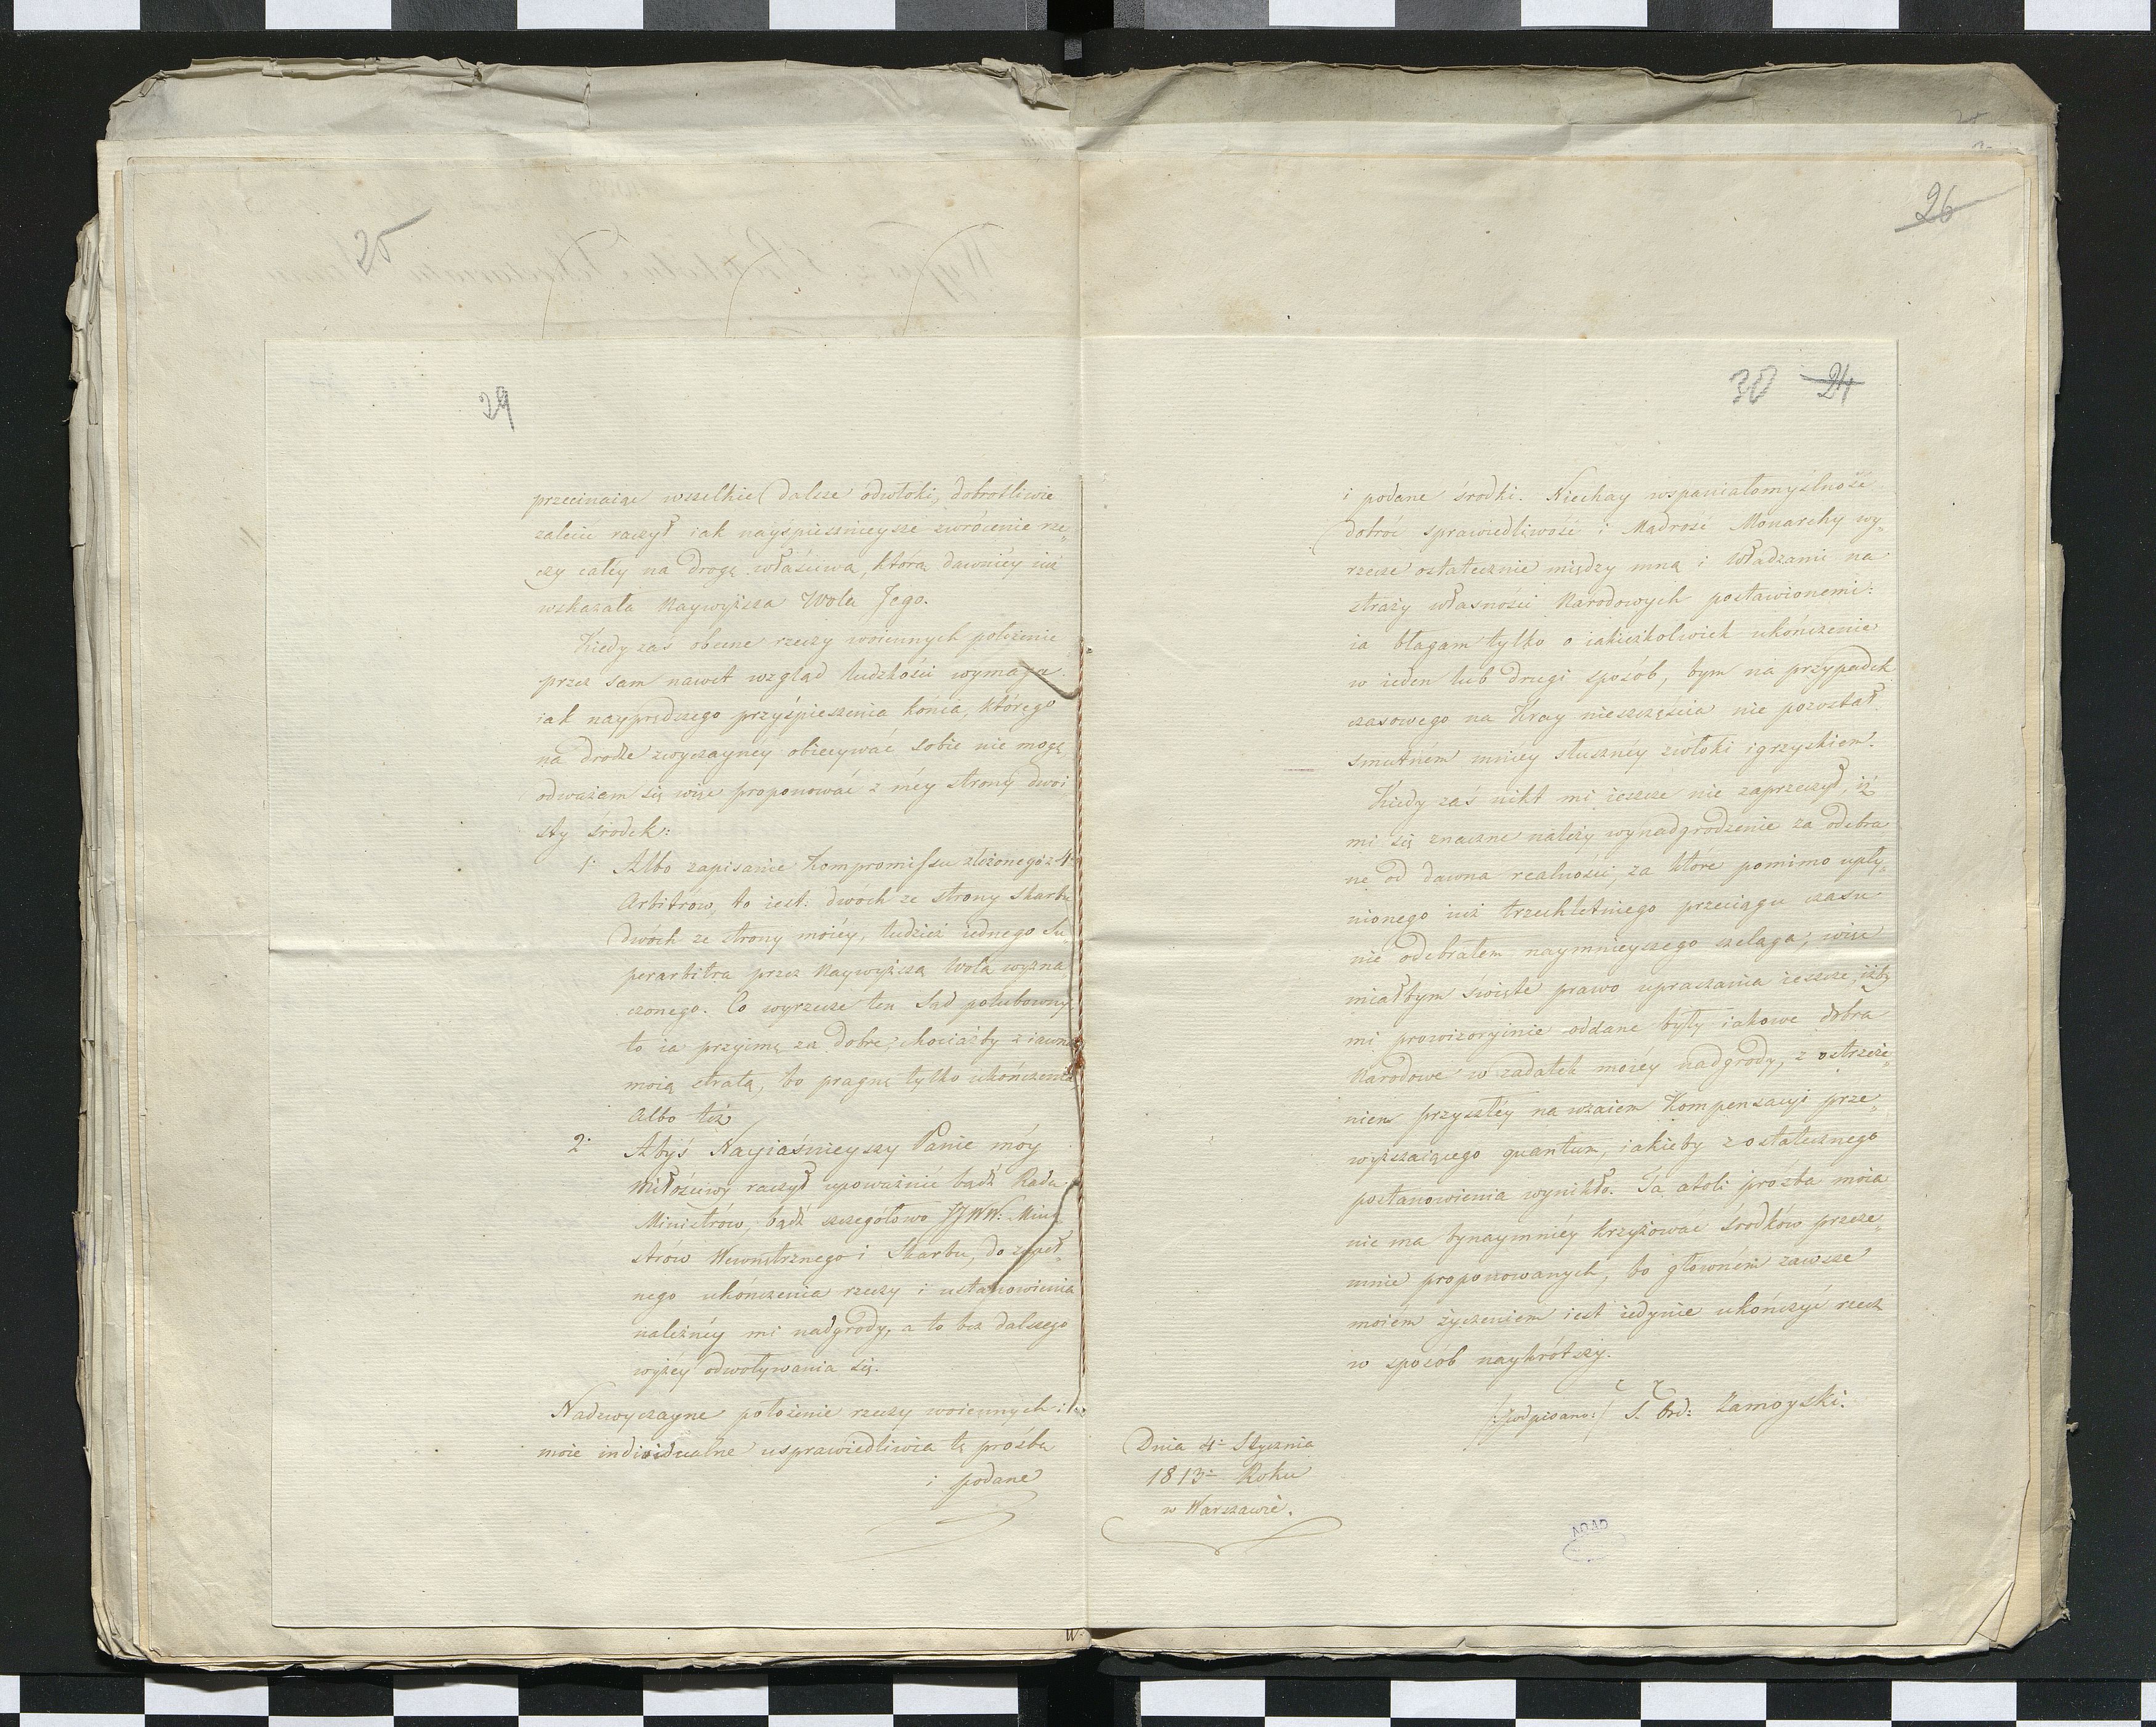 25
29
przecinaiąc wszelkie dalsze odwłoki, dobrotliwie
zalecić raczył iak nayśpiesznieysze zwrócenie rze„
czy całéy na drogę właściwą, którą dawniéy iuż
wskazała Naywyższa Wola Jego.
Kiedy zaś obecne rzeczy woiennych położenie
przez sam nawet wzgląd ludzkości wymaga
iak nayprędszego przyśpieszenia końca, którego
na drodze zwyczaynéy obiecywać sobie nie mogę
odważam się więc proponować z méy strony dwoi
sty środek:
1. Albo zapisanie Kompromissu złożonego z 4.
Arbitrów, to iest: dwóch ze strony Skarbu
dwóch ze strony moiéy, tudzież iednego Su
perarbitra przez Naywyższą Wolą wyzna
czonego. Co wyrzecze ten Sąd polubowny
to ia przyimę za dobre, chociażby z iawną
moią stratą, bo pragnę tylko ukończenia
Albo też
2. Abyś Nayiaśnieyszy Panie móy
Miłościwy raczył upoważnić bądź Radę
Ministrów, bądź szczegółowo JJWW. Mini
strów Wewnętrznego i Skarbu, do zupeł„
nego ukończenia rzeczy i ustanowienia
należnéy mi nadgrody, a to bez dalszego
wyżéy odwoływania się.
Nadzwyczayne położenie rzeczy woiennych i
moie individualne usprawiedliwia tę prośbę
i podane
26
30 24
i podane środki. Niechay wspaniałomyślność
dobroć sprawiedliwość i Mądrość Monarchy wy„
rzecze ostatecznie między mną i Władzami na
straży własności Narodowych postawionemi:
ia błagam tylko o iakieżkolwiek ukończenie
w ieden lub drugi sposób, bym na przypadek
czasowego na Kray nieszczęścia nie pozostał
smutném mniéy słusznéy zwłoki igrzyskiem.
Kiedy zaś nikt mi ieszcze nie zaprzeczył, iż
mi się znaczne należy wynadgrodzenie za odebra
ne od dawna realności, za które pomimo upły„
nionego iuż trzechletniego przeciągu czasu
nie odebrałem naymnieyszego szeląga; więc
miałbym święte prawo upraszania ieszcze, iżby
mi prowizoryinie oddane były iakowe dobra
Narodowe w zadatek moiéy nadgrody, z ostrzeże„
niem przyszłéy na wzaiem Kompensacyi prze„
wyższaiącego quantum, iakieby z ostatecznego
postanowienia wynikło. Ta atoli prozba moia
nie ma bynaymniéy krzyżować środków przeze„
mnie proponowanych, bo głowném zawsze
moiém życzeniem iest iedynie ukończyć rzecz
w sposób naykrótszy.
/:podpisano:/ S. Ord: Zamoyski.
Dnia 4. Stycznia
1813. Roku
w Warszawie.
AGAD